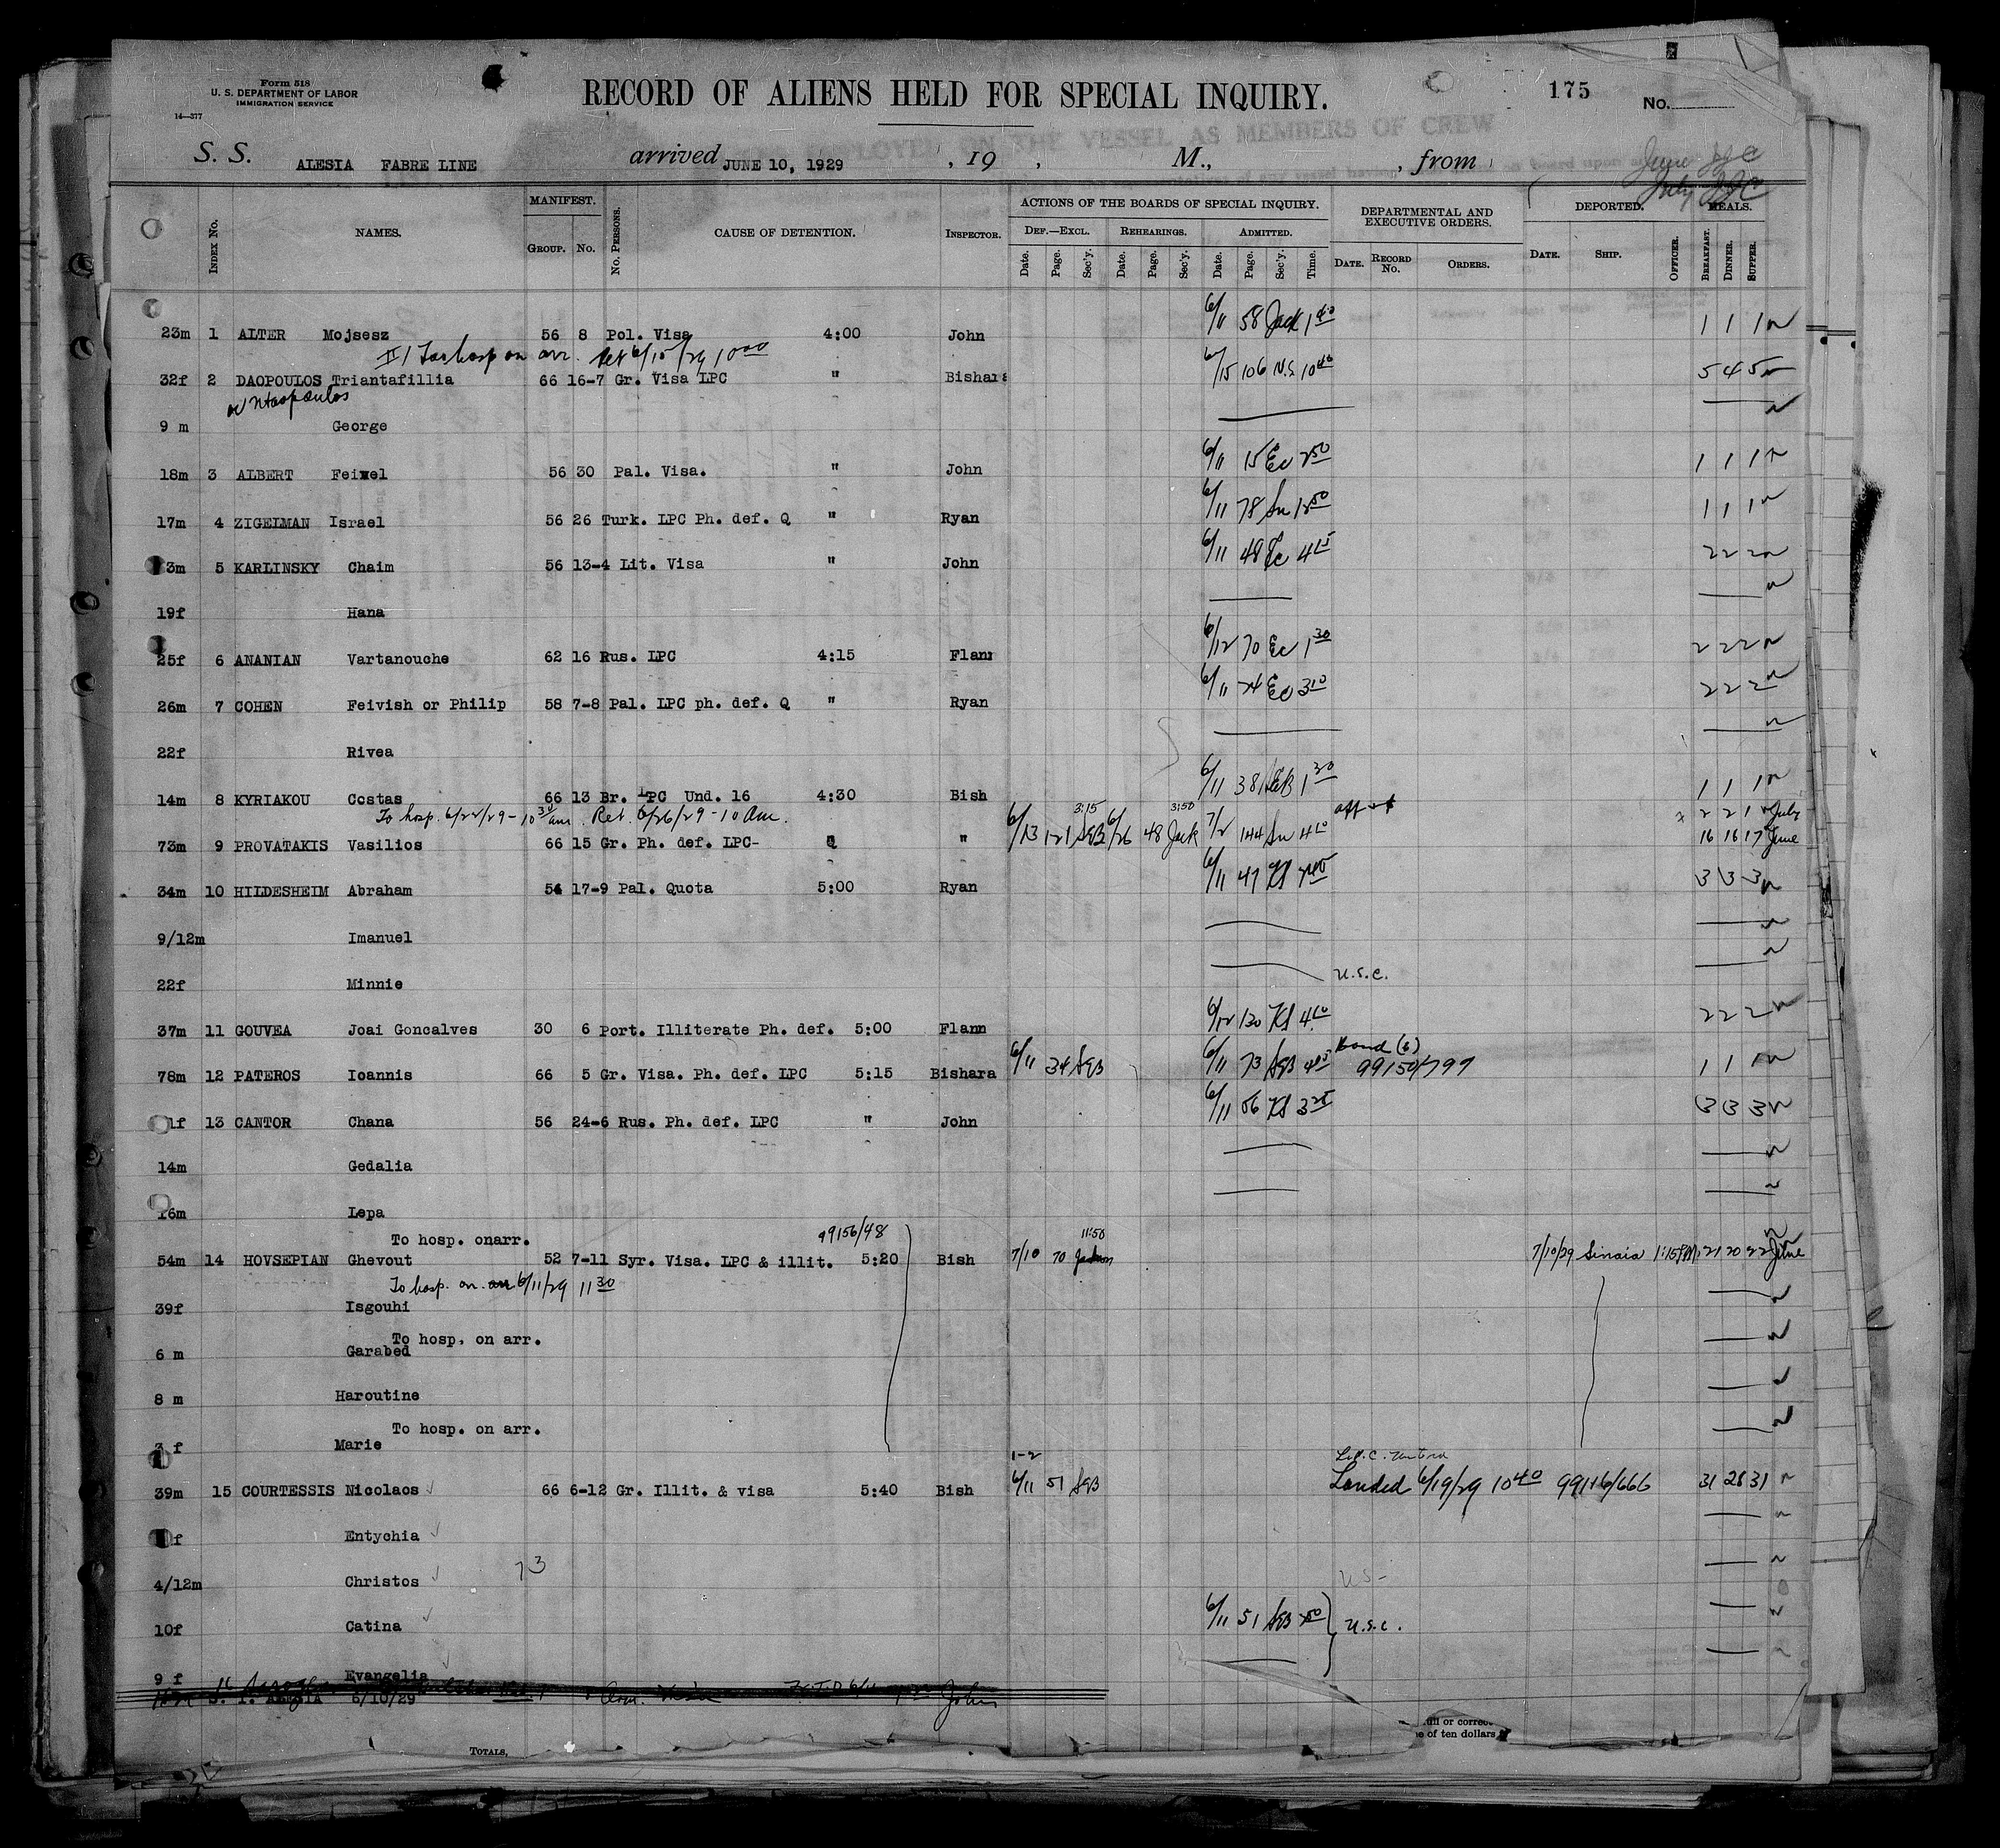 Form 518
U. S. DEPARTMENT OF LABOR
IMMIGRATION SERVICE
14—377
RECORD OF ALIENS HELD FOR SPECIAL INQUIRY.
175 No.
THE VESSEL AS MEMBERS OF CREW
S. S. ALESIA FABRE LINE arrived JUNE 10, 1929 , 19 , M., , from
June
July
INDEX NO. NAMES. MANIFEST. GROUP. NO. NO. PERSONS. CAUSE OF DETENTION. INSPECTOR. ACTIONS OF THE BOARDS OF SPECIAL INQUIRY. DEPARTMENTAL AND EXECUTIVE ORDERS. DEPORTED. MEALS.
DEF.—EXCL. REHEARINGS. ADMITTED.
Date. Page. Sec'y. Date. Page. Sec'y. Date. Page. Sec'y. Time. DATE. RECORD NO. ORDERS. DATE. SHIP. OFFICER. BREAKFAST. DINNER. SUPPER.
23m 1 ALTER Mojsesz 56 8 Pol. Visa 4:00 John 6/11 58 Jack 1 1 1 1
To hosp on arr. Ret 6/15/29 10 00
32f 2 DAOPOULOS Triantafillia 66 16-7 Gr. Visa LPC " Bishara 6/15 106 N.S. 10 40 5 4 5
or Ntaopoulos
9 m George
18m 3 ALBERT Feiwel 56 30 Pal. Visa. " John 6/11 15 Ec 2 50 1 1 1
17m 4 ZIGELMAN Israel 56 26 Turk. LPC Ph. def. Q " Ryan 6/11 78 Sn 12 50 1 1 1
3m 5 KARLINSKY Chaim 56 13-4 Lit. Visa " John 6/11 48 Ec 4 15 2 2 2
19f Hana
25f 6 ANANIAN Vartanouche 62 16 Rus. LPC 4:15 Flann 6/12 70 Ec 1 30 2 2 2
26m 7 COHEN Feivish or Philip 58 7-8 Pal. LPC ph. def. Q " Ryan 6/11 24 Ec 3 10 2 2 2
22f Rivea
14m 8 KYRIAKOU Costas 66 13 Br. LPC Und. 16 4:30 Bish 6/11 38 SEB 1 30 1 1 1
To hosp. 6/22/29 - 10 30 am. Ret. 6/26/29 - 10 Am. 3:15 3:50 2 2 1 July
73m 9 PROVATAKIS Vasilios 66 15 Gr. Ph. def. LPC- Q " 6/13 121 SEB 6/26 48 Jack 7/2 144 Sn 4 10 16 16 17 June
34m 10 HILDESHEIM Abraham 54 17-9 Pal. Quota 5:00 Ryan 6/11 47 KS 3 3 3
9/12m Imanuel
22f Minnie U.S.C.
37m 11 GOUVEA Joai Goncalves 30 6 Port. Illiterate Ph. def. 5:00 Flann 6/12 130 KS 4 10 2 2 2
Bond (6)
78m 12 PATEROS Ioannis 66 5 Gr. Visa. Ph. def. LPC 5:15 Bishara 6/11 34 SEB 6/11 73 SEB 4 15 99150/799 1 1 1
1f 13 CANTOR Chana 56 24-6 Rus. Ph. def. LPC " John 6/11 56 KS 3 25 3 3 3
14m Gedalia
16m Lepa
To hosp. onarr. 99156/48 11:50
54m 14 HOVSEPIAN Ghevout 52 7-11 Syr. Visa. LPC & illit. 5:20 Bish 7/10 70 Jackson 7/10/29 Sinaia 1:15 PM 21 20 22 June
To hosp. on arr 6/11/29 11 30
39f Isgouhi
To hosp. on arr.
6 m Garabed
8 m Haroutine
To hosp. on arr.
3 f Marie
1-2
39m 15 COURTESSIS Nicolaos 66 6-12 Gr. Illit. & visa 5:40 Bish 6/11 51 SEB Landed 6/19/29 10 40 99146/666 31 28 31
f Entychia
4/12m Christos 73 U.S-
10f Catina 6/11 51 SEB U.S.C.
9 f Evangelia
S. I. ALESIA 6/10/29 John
full or correct
e of ten dollars
TOTALS,